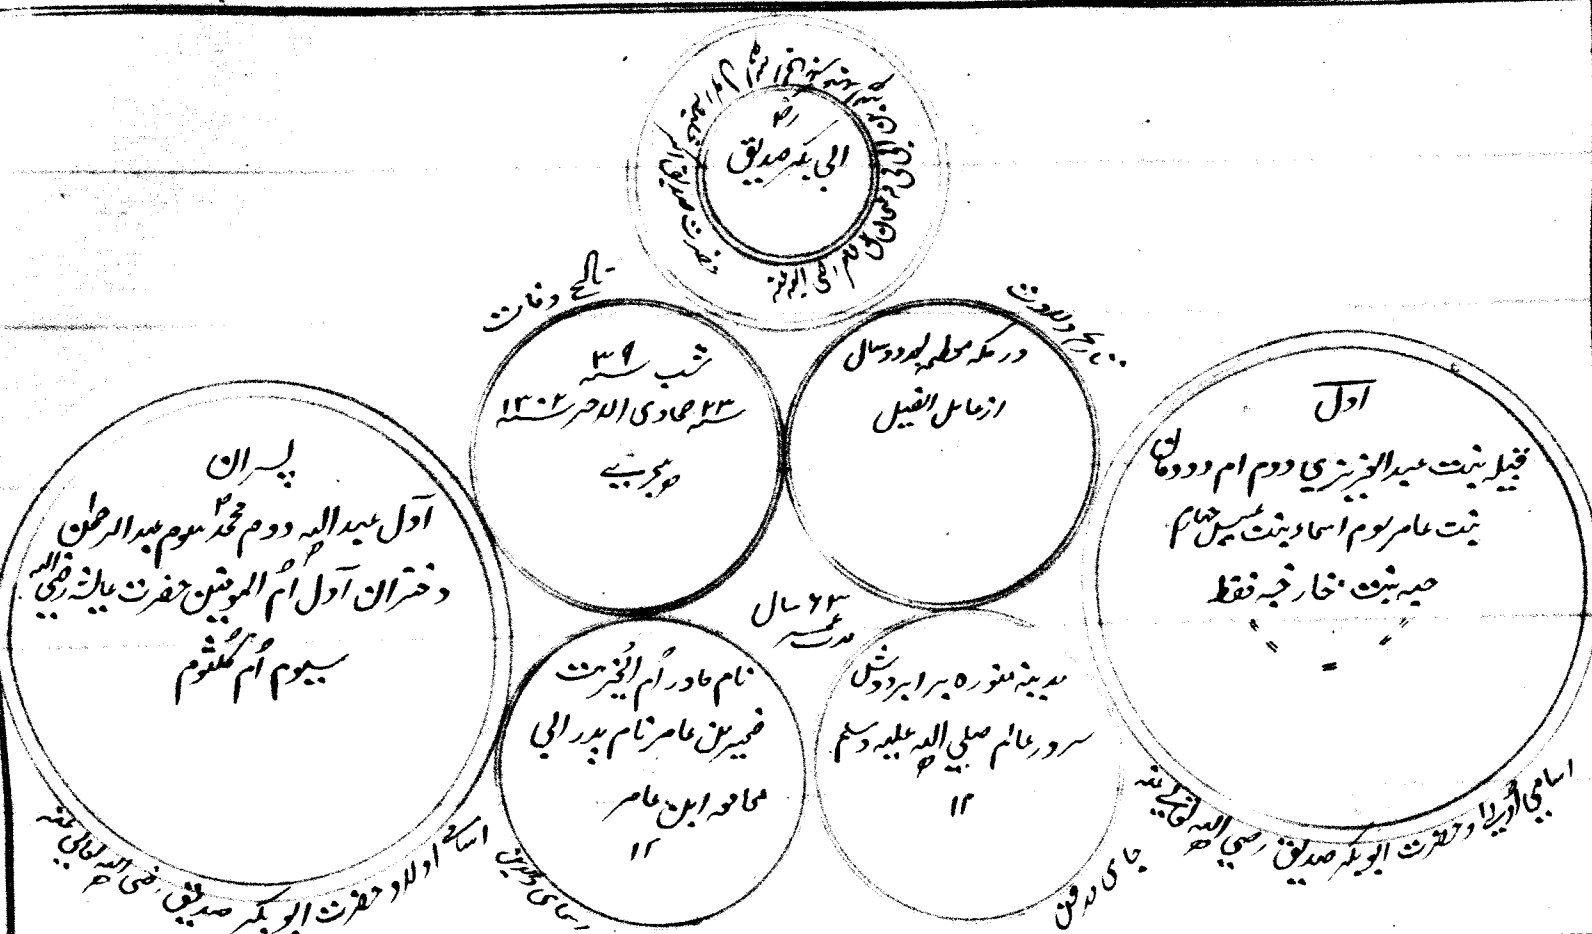 رضہ
ابی بکر صدیق
حضرت صدیق اکبر
تاریخ وفات
شب ۳۹ سنہ
۲۳ سنہ جمادی الاخر سنہ ۱۳۰۲
ہجریے
تاریخ ولادت
در مکہ معظمہ بعد دو سال
از عامل الفیل
اول
قتیلہ بنت عبد العزیزي دوم ام دودمان
بنت عامر سوم اسماء بنت عمیس چہارم
حبیہ بنت خارجہ فقط
اسامي حضرت ابو بکر صدیق رضي اللہ تعالی عنہ
پسران
آول عبد اللہ دوم محمد سوم عبد الرحمن
دختران آول اُم المومنین حضرت عایشہ رضی اللہ
سیوم اُم کلثوم
اسمائے اولاد حضرت ابو بکر صدیق رضی اللہ تعالی عنہ
۶۳ سال
مدت عمر
نام مادر اُم الخیر بنت
بن عامر نام پدر ابی
قحافہ ابن عامر
۱۲
اسمای والدین
مدینہ منورہ برابر دوش
سرور عالم صلي اللہ علیہ وسلم
۱۲
جای مدفن